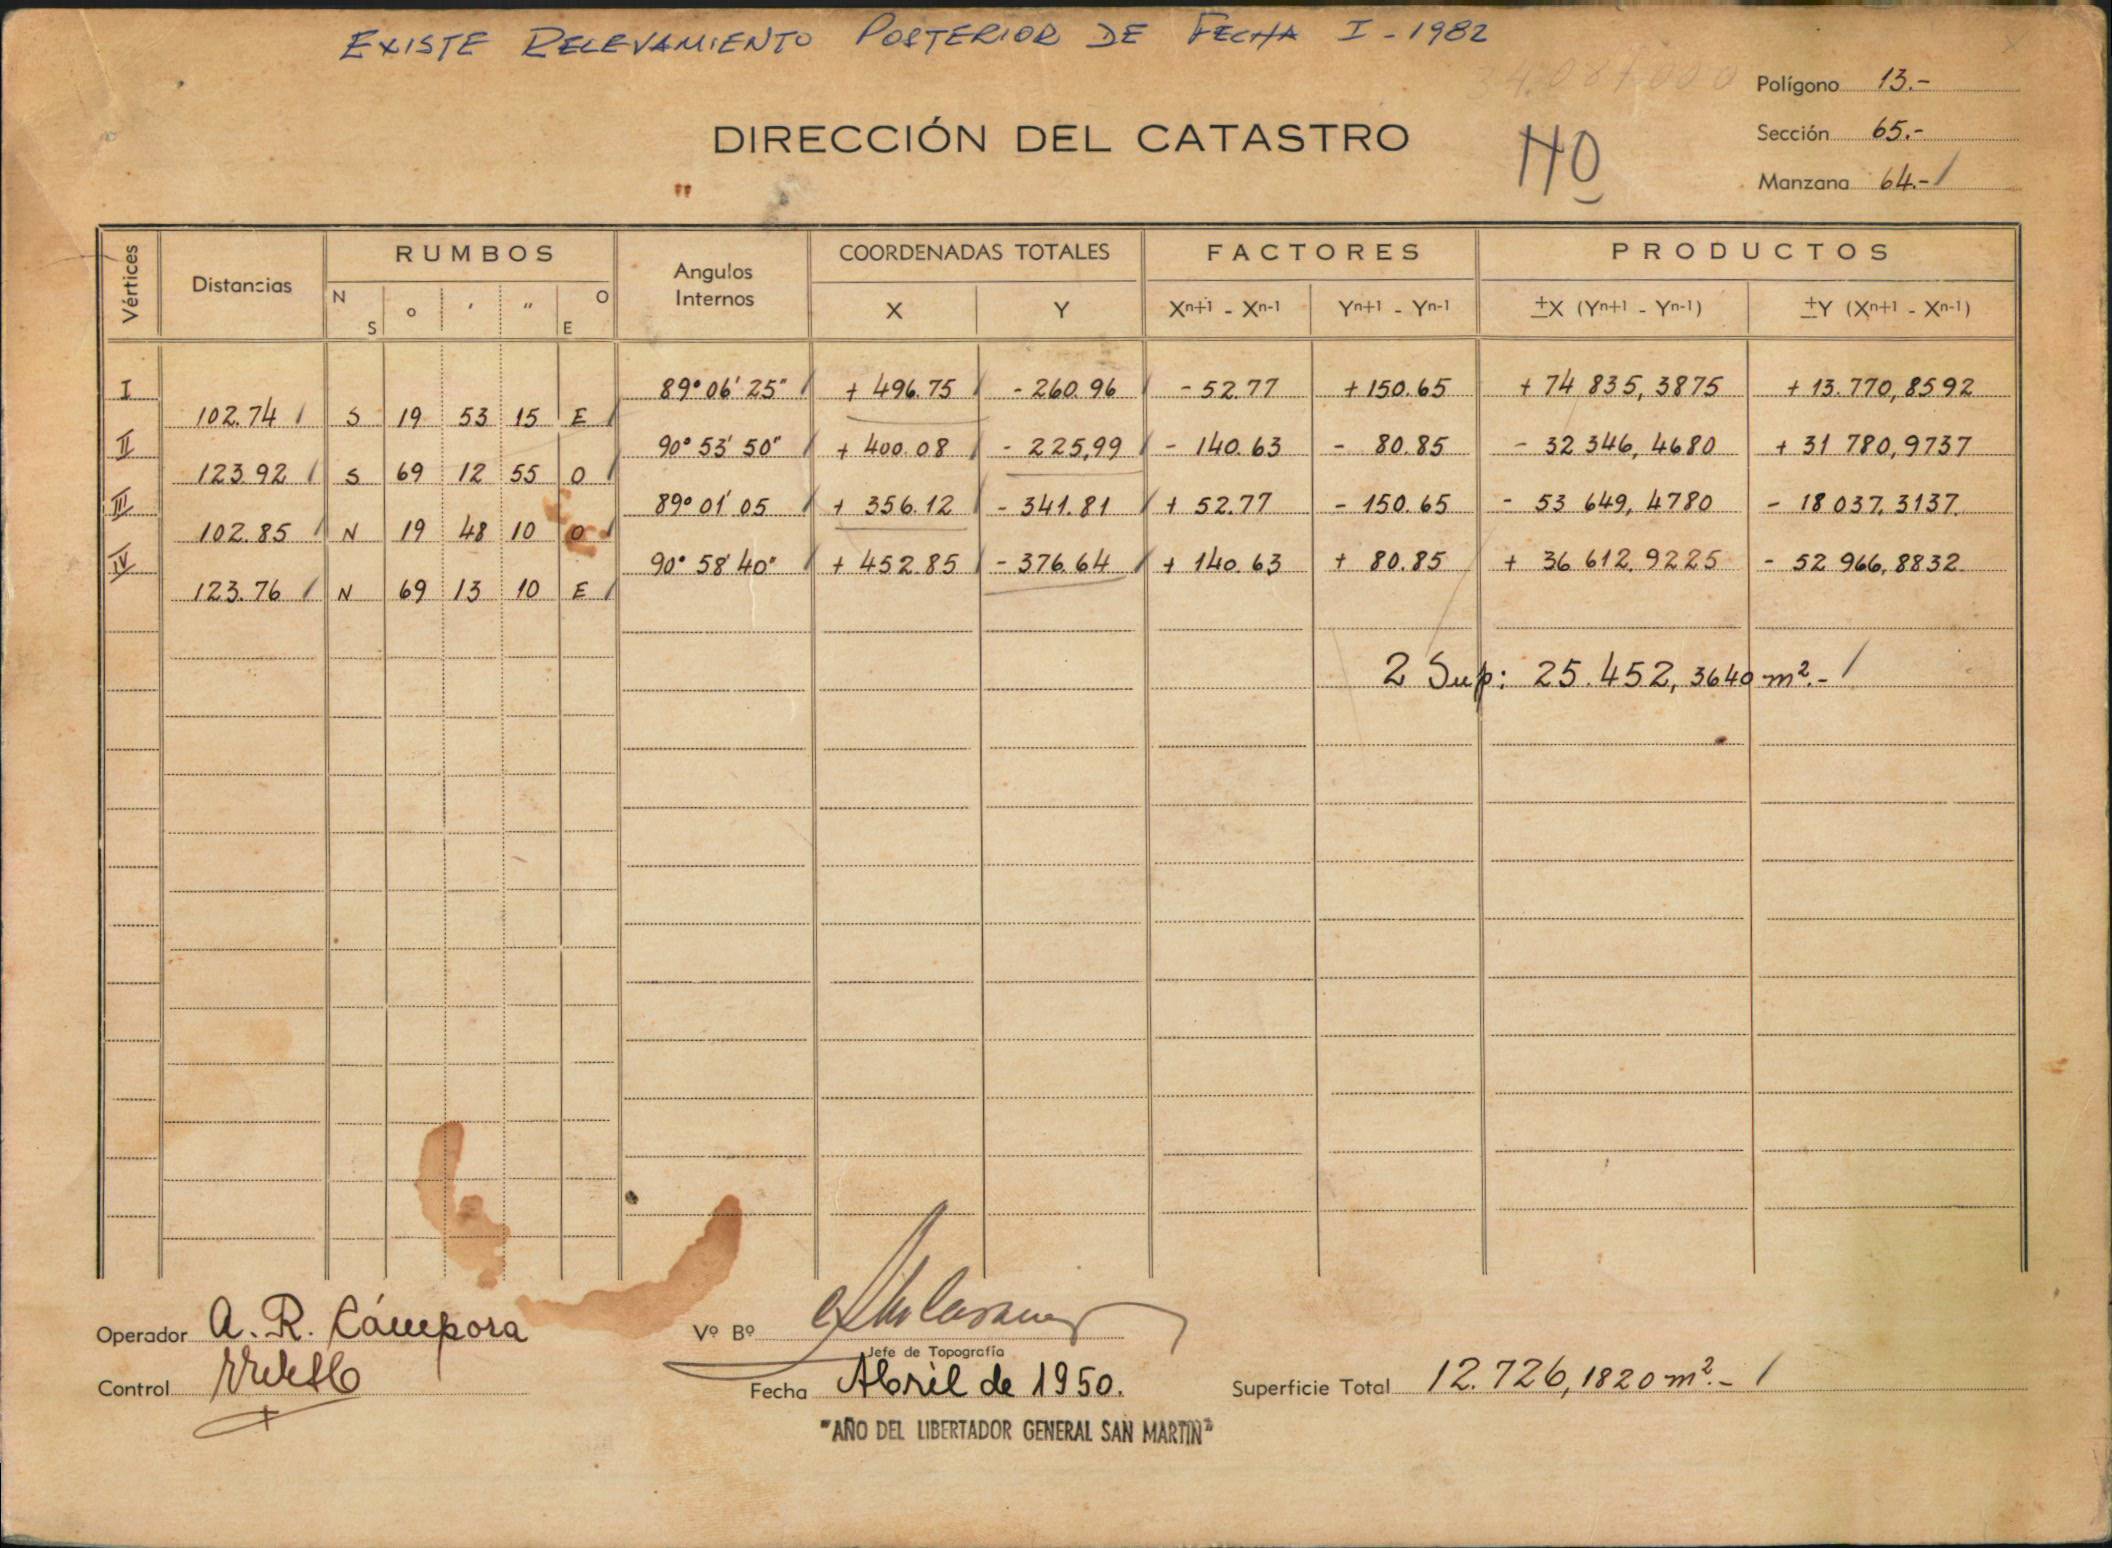 EXISTE RELEVAMIENTO POSTERIOR DE FECHA I - 1982
Polígono 13.-
DIRECCIÓN DEL CATASTRO
Sección 65.-
Manzana 64.-/
Vértices Distancias RUMBOS Angulos Internos COORDENADAS TOTALES FACTORES PRODUCTOS
N S o ' " O E X Y Xn+1 - Xn-1 Yn+1 - Yn-1 ±X (Yn+1 - Yn-1) ±Y (Xn+1 - Xn-1)
I 89° 06' 25" + 496.75 - 260.96 - 52.77 + 150.65 + 74 835,3875 + 13.770,8592
102.74 S 19 53 15 E
II 90° 53' 50" + 400.08 - 225,99 - 140.63 - 80.85 - 32 346,4680 + 31 780,9737
123.92 S 69 12 55 O
III 89° 01' 05 + 356.12 - 341.81 + 52.77 - 150.65 - 53 649,4780 - 18 037,3137
102.85 N 19 48 10 O
IV 90° 58' 40" + 452.85 - 376.64 + 140.63 + 80.85 + 36 612,9225 - 52 966,8832
123.76 N 69 13 10 E
2 Sup: 25.452,3640 m².- /
Operador A. R. Cámpora
Vº Bº
Jefe de Topografía
Control
Fecha Abril de 1950.
Superficie Total 12.726,1820 m².- /
"AÑO DEL LIBERTADOR GENERAL SAN MARTIN"